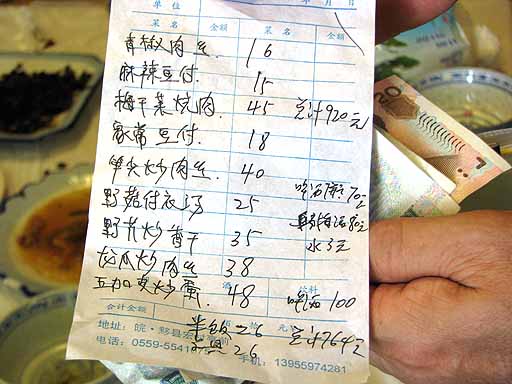 单位 年 月 日
菜名 金额 菜名 金额
青椒肉丝 16
麻辣豆付 15
梅干菜烧肉 45 总计920元
家常豆付 18
笋尖炒肉丝 40
野菇付衣汤 25
水3元
野芹炒香干 35
炒肉丝 38
炒蛋 48 啤酒 100
酒 饮料
合计金额 元
米饭 26 总计764元
地址: 皖·黟县宏
26
电话: 0559-5541 手机: 13955974281
20